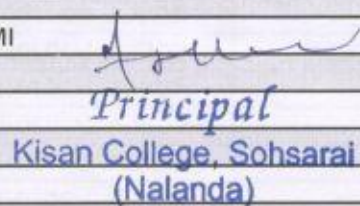 MI
Principal
Kisan College, Sohsarai
(Nalanda)